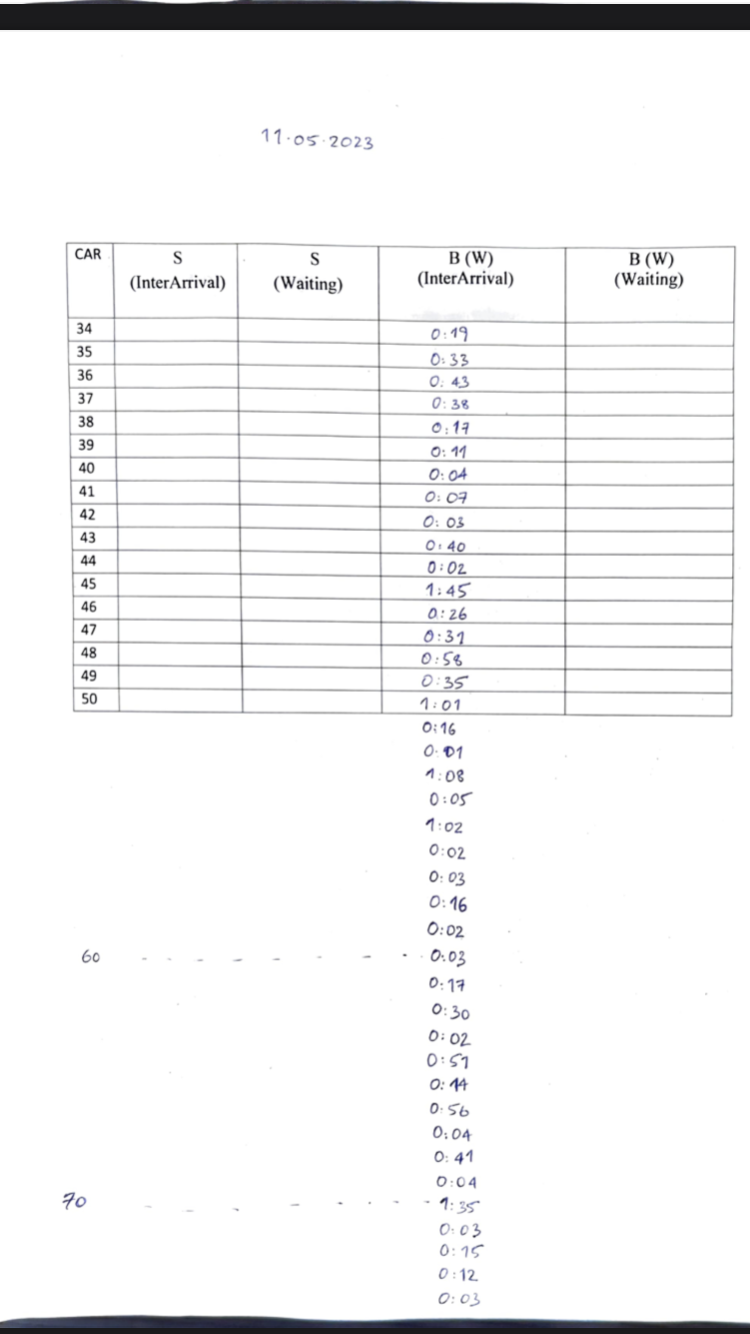 11.05.2023
CAR S (InterArrival) S (Waiting) B (W) (InterArrival) B (W) (Waiting)
34 0:19
35 0:33
36 0:43
37 0:38
38 0:17
39 0:11
40 0:04
41 0:07
42 0:03
43 0:40
44 0:02
45 1:45
46 0:26
47 0:31
48 0:58
49 0:35
50 1:01
0:16
0:01
1:08
0:05
1:02
0:02
0:03
0:16
0:02
60 0:03
0:17
0:30
0:02
0:51
0:14
0:56
0:04
0:41
0:04
70 1:35
0:03
0:15
0:12
0:03